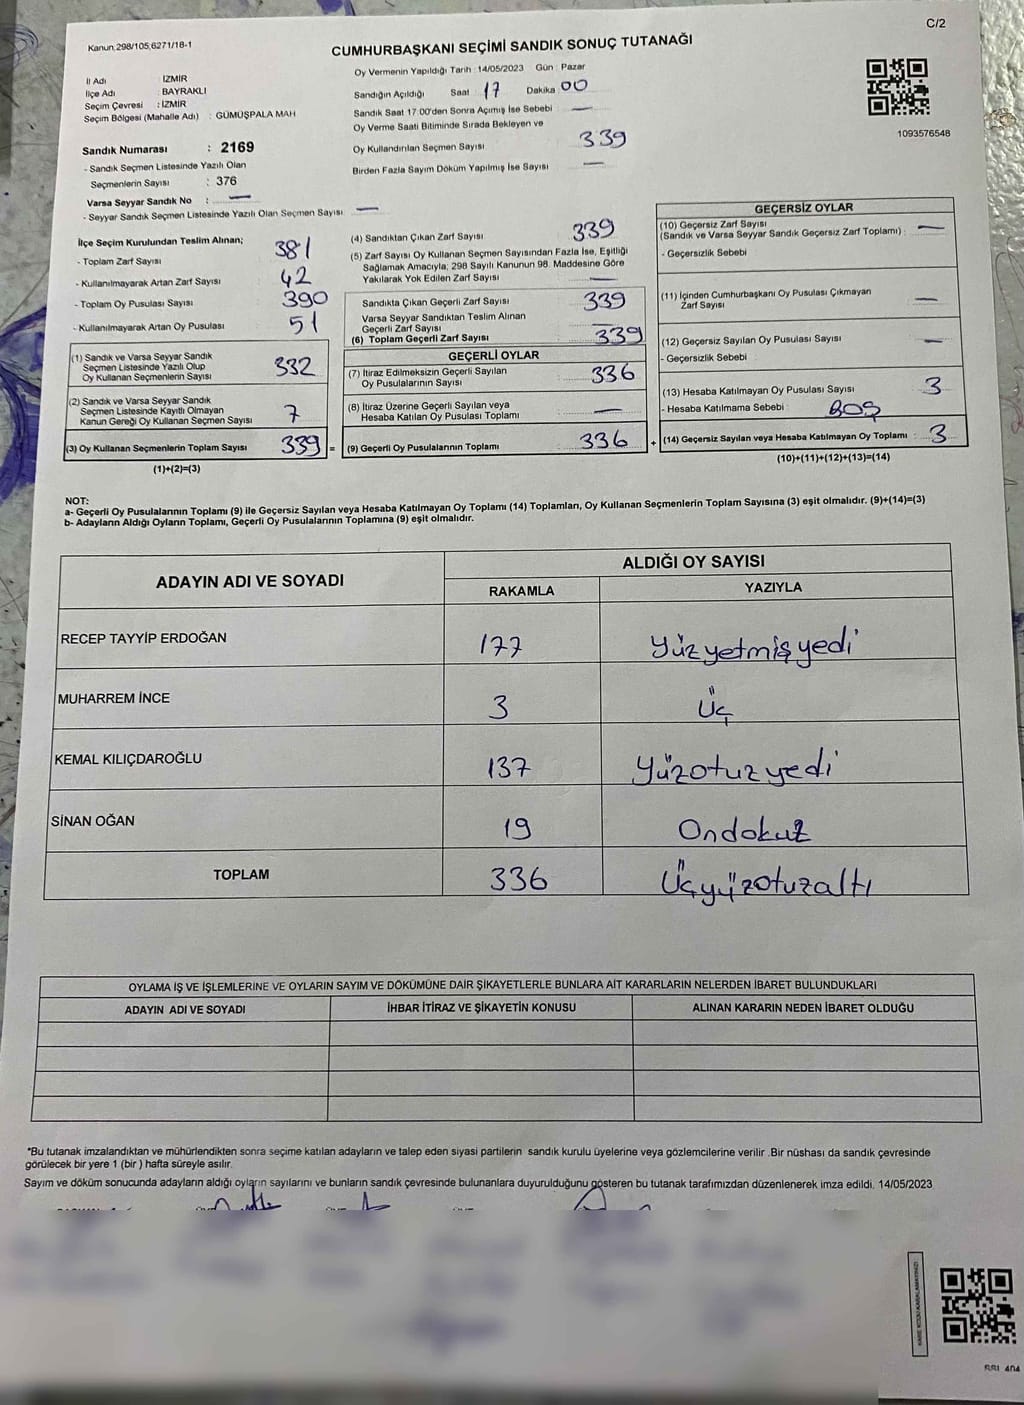 C/2
Kanun:298/105;6271/18-1
CUMHURBAŞKANI SEÇİMİ SANDIK SONUÇ TUTANAĞI
İl Adı : İZMİR
İlçe Adı : BAYRAKLI
Seçim Çevresi : İZMİR
Seçim Bölgesi (Mahalle Adı) : GÜMÜŞPALA MAH
Sandık Numarası : 2169
- Sandık Seçmen Listesinde Yazılı Olan
Seçmenlerin Sayısı : 376
Varsa Seyyar Sandık No : —
- Seyyar Sandık Seçmen Listesinde Yazılı Olan Seçmen Sayısı : —
Oy Vermenin Yapıldığı Tarih : 14/05/2023 Gün : Pazar
Sandığın Açıldığı Saat : 17 Dakika 00
Sandık Saat 17:00'den Sonra Açımış İse Sebebi —
Oy Verme Saati Bitiminde Sırada Bekleyen ve
Oy Kullandırılan Seçmen Sayısı 339
Birden Fazla Sayım Döküm Yapılmış İse Sayısı —
1093576548
İlçe Seçim Kurulundan Teslim Alınan;
- Toplam Zarf Sayısı : 381
- Kullanılmayarak Artan Zarf Sayısı : 42
- Toplam Oy Pusulası Sayısı : 390
- Kullanılmayarak Artan Oy Pusulası : 51
(1) Sandık ve Varsa Seyyar Sandık
Seçmen Listesinde Yazılı Olup
Oy Kullanan Seçmenlerin Sayısı : 332
(2) Sandık ve Varsa Seyyar Sandık
Seçmen Listesinde Kayıtlı Olmayan
Kanun Gereği Oy Kullanan Seçmen Sayısı : 7
(3) Oy Kullanan Seçmenlerin Toplam Sayısı : 339 =
(1)+(2)=(3)
(4) Sandıktan Çıkan Zarf Sayısı : 339
(5) Zarf Sayısı Oy Kullanan Seçmen Sayısından Fazla İse, Eşitliği
Sağlamak Amacıyla; 298 Sayılı Kanunun 98. Maddesine Göre
Yakılarak Yok Edilen Zarf Sayısı : —
Sandıkta Çıkan Geçerli Zarf Sayısı : 339
Varsa Seyyar Sandıktan Teslim Alınan
Geçerli Zarf Sayısı : —
(6) Toplam Geçerli Zarf Sayısı : 339
GEÇERLİ OYLAR
(7) İtiraz Edilmeksizin Geçerli Sayılan
Oy Pusulalarının Sayısı : 336
(8) İtiraz Üzerine Geçerli Sayılan veya
Hesaba Katılan Oy Pusulası Toplamı : —
(9) Geçerli Oy Pusulalarının Toplamı : 336 +
GEÇERSİZ OYLAR
(10) Geçersiz Zarf Sayısı
(Sandık ve Varsa Seyyar Sandık Geçersiz Zarf Toplamı) : —
- Geçersizlik Sebebi
(11) İçinden Cumhurbaşkanı Oy Pusulası Çıkmayan
Zarf Sayısı : —
(12) Geçersiz Sayılan Oy Pusulası Sayısı : —
- Geçersizlik Sebebi
(13) Hesaba Katılmayan Oy Pusulası Sayısı : 3
- Hesaba Katılmama Sebebi : BOŞ
(14) Geçersiz Sayılan veya Hesaba Katılmayan Oy Toplamı : 3
(10)+(11)+(12)+(13)=(14)
NOT:
a- Geçerli Oy Pusulalarının Toplamı (9) ile Geçersiz Sayılan veya Hesaba Katılmayan Oy Toplamı (14) Toplamları, Oy Kullanan Seçmenlerin Toplam Sayısına (3) eşit olmalıdır. (9)+(14)=(3)
b- Adayların Aldığı Oyların Toplamı, Geçerli Oy Pusulalarının Toplamına (9) eşit olmalıdır.
ADAYIN ADI VE SOYADI
ALDIĞI OY SAYISI
RAKAMLA YAZIYLA
RECEP TAYYİP ERDOĞAN 177 Yüzyetmişyedi
MUHARREM İNCE 3 Üç
KEMAL KILIÇDAROĞLU 137 Yüzotuzyedi
SİNAN OĞAN 19 Ondokuz
TOPLAM 336 Üçyüzotuzaltı
OYLAMA İŞ VE İŞLEMLERİNE VE OYLARIN SAYIM VE DÖKÜMÜNE DAİR ŞİKAYETLERLE BUNLARA AİT KARARLARIN NELERDEN İBARET BULUNDUKLARI
ADAYIN ADI VE SOYADI İHBAR İTİRAZ VE ŞİKAYETİN KONUSU ALINAN KARARIN NEDEN İBARET OLDUĞU
*Bu tutanak imzalandıktan ve mühürlendikten sonra seçime katılan adayların ve talep eden siyasi partilerin sandık kurulu üyelerine veya gözlemcilerine verilir .Bir nüshası da sandık çevresinde
görülecek bir yere 1 (bir ) hafta süreyle asılır.
Sayım ve döküm sonucunda adayların aldığı oyların sayılarını ve bunların sandık çevresinde bulunanlara duyurulduğunu gösteren bu tutanak tarafımızdan düzenlenerek imza edildi. 14/05/2023
KARE KODU KARALAMAYINIZ!